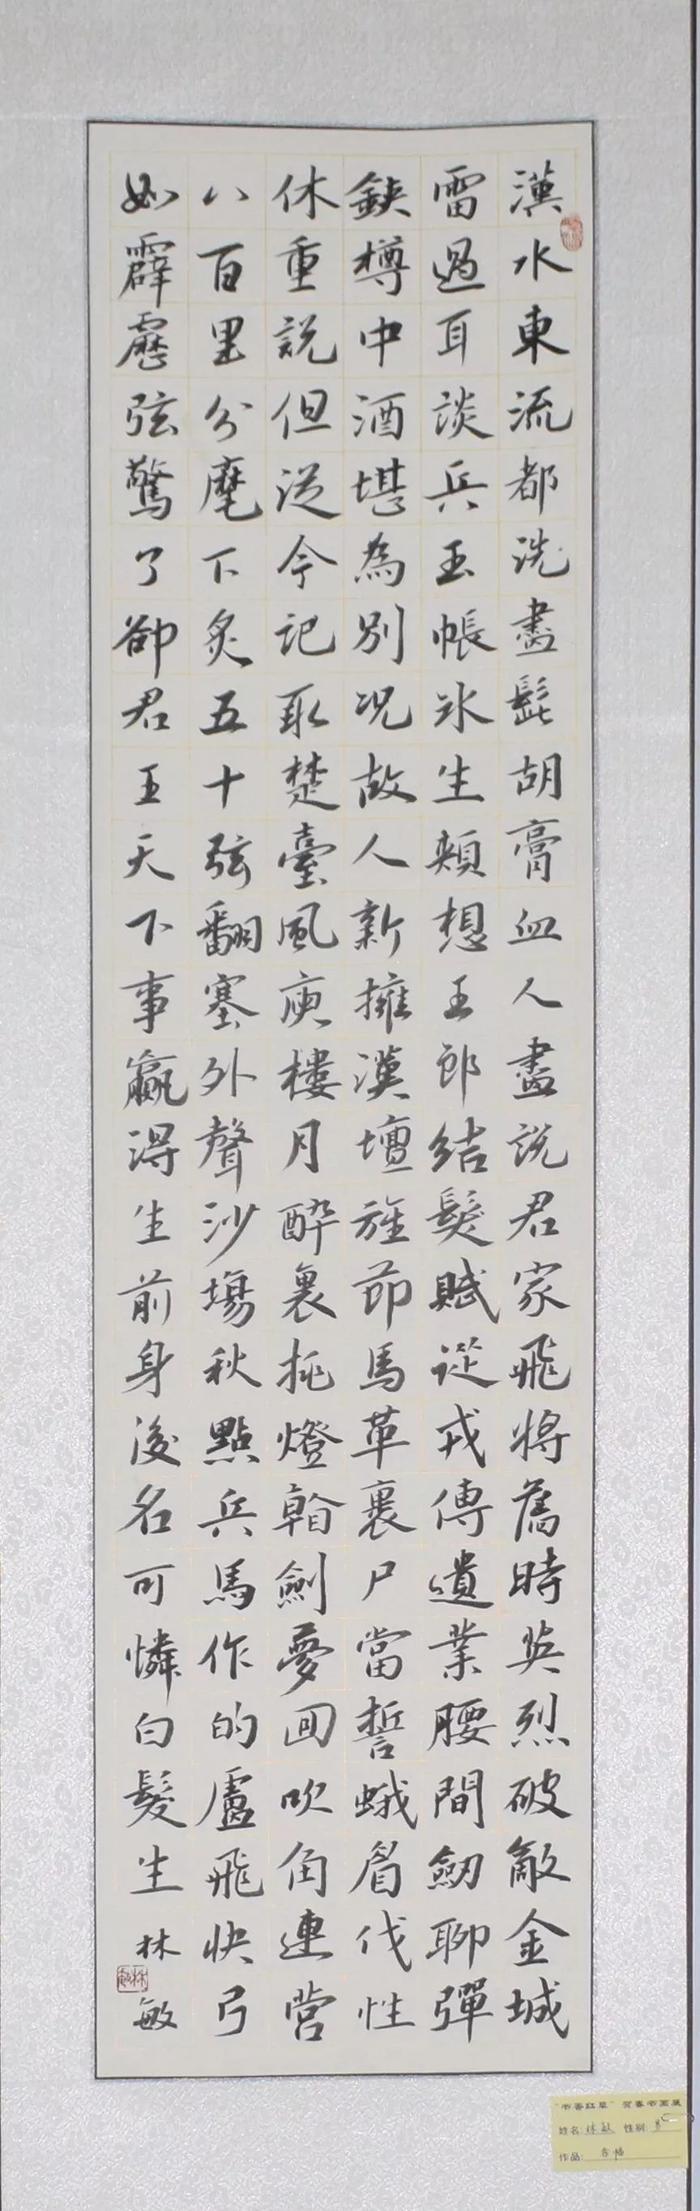 漢水東流都洗盡髭胡膏血人盡說君家飛將舊時英烈破敵金城
雷過耳談兵玉帳冰生頰想王郎結髮賦從戎傳遺業腰間劒聊彈
鋏樽中酒堪為別況故人新擁漢壇旌節馬革裹尸當誓蛾眉伐性
休重說但從今記取楚臺風庾樓月醉裏挑燈看劍夢回吹角連營
八百里分麾下炙五十弦翻塞外聲沙場秋點兵馬作的盧飛快弓
如霹靂弦驚了卻君王天下事贏得生前身後名可憐白髮生 林敏
“书香红草”贺春书画展
姓名:林敏 性别:男
作品: